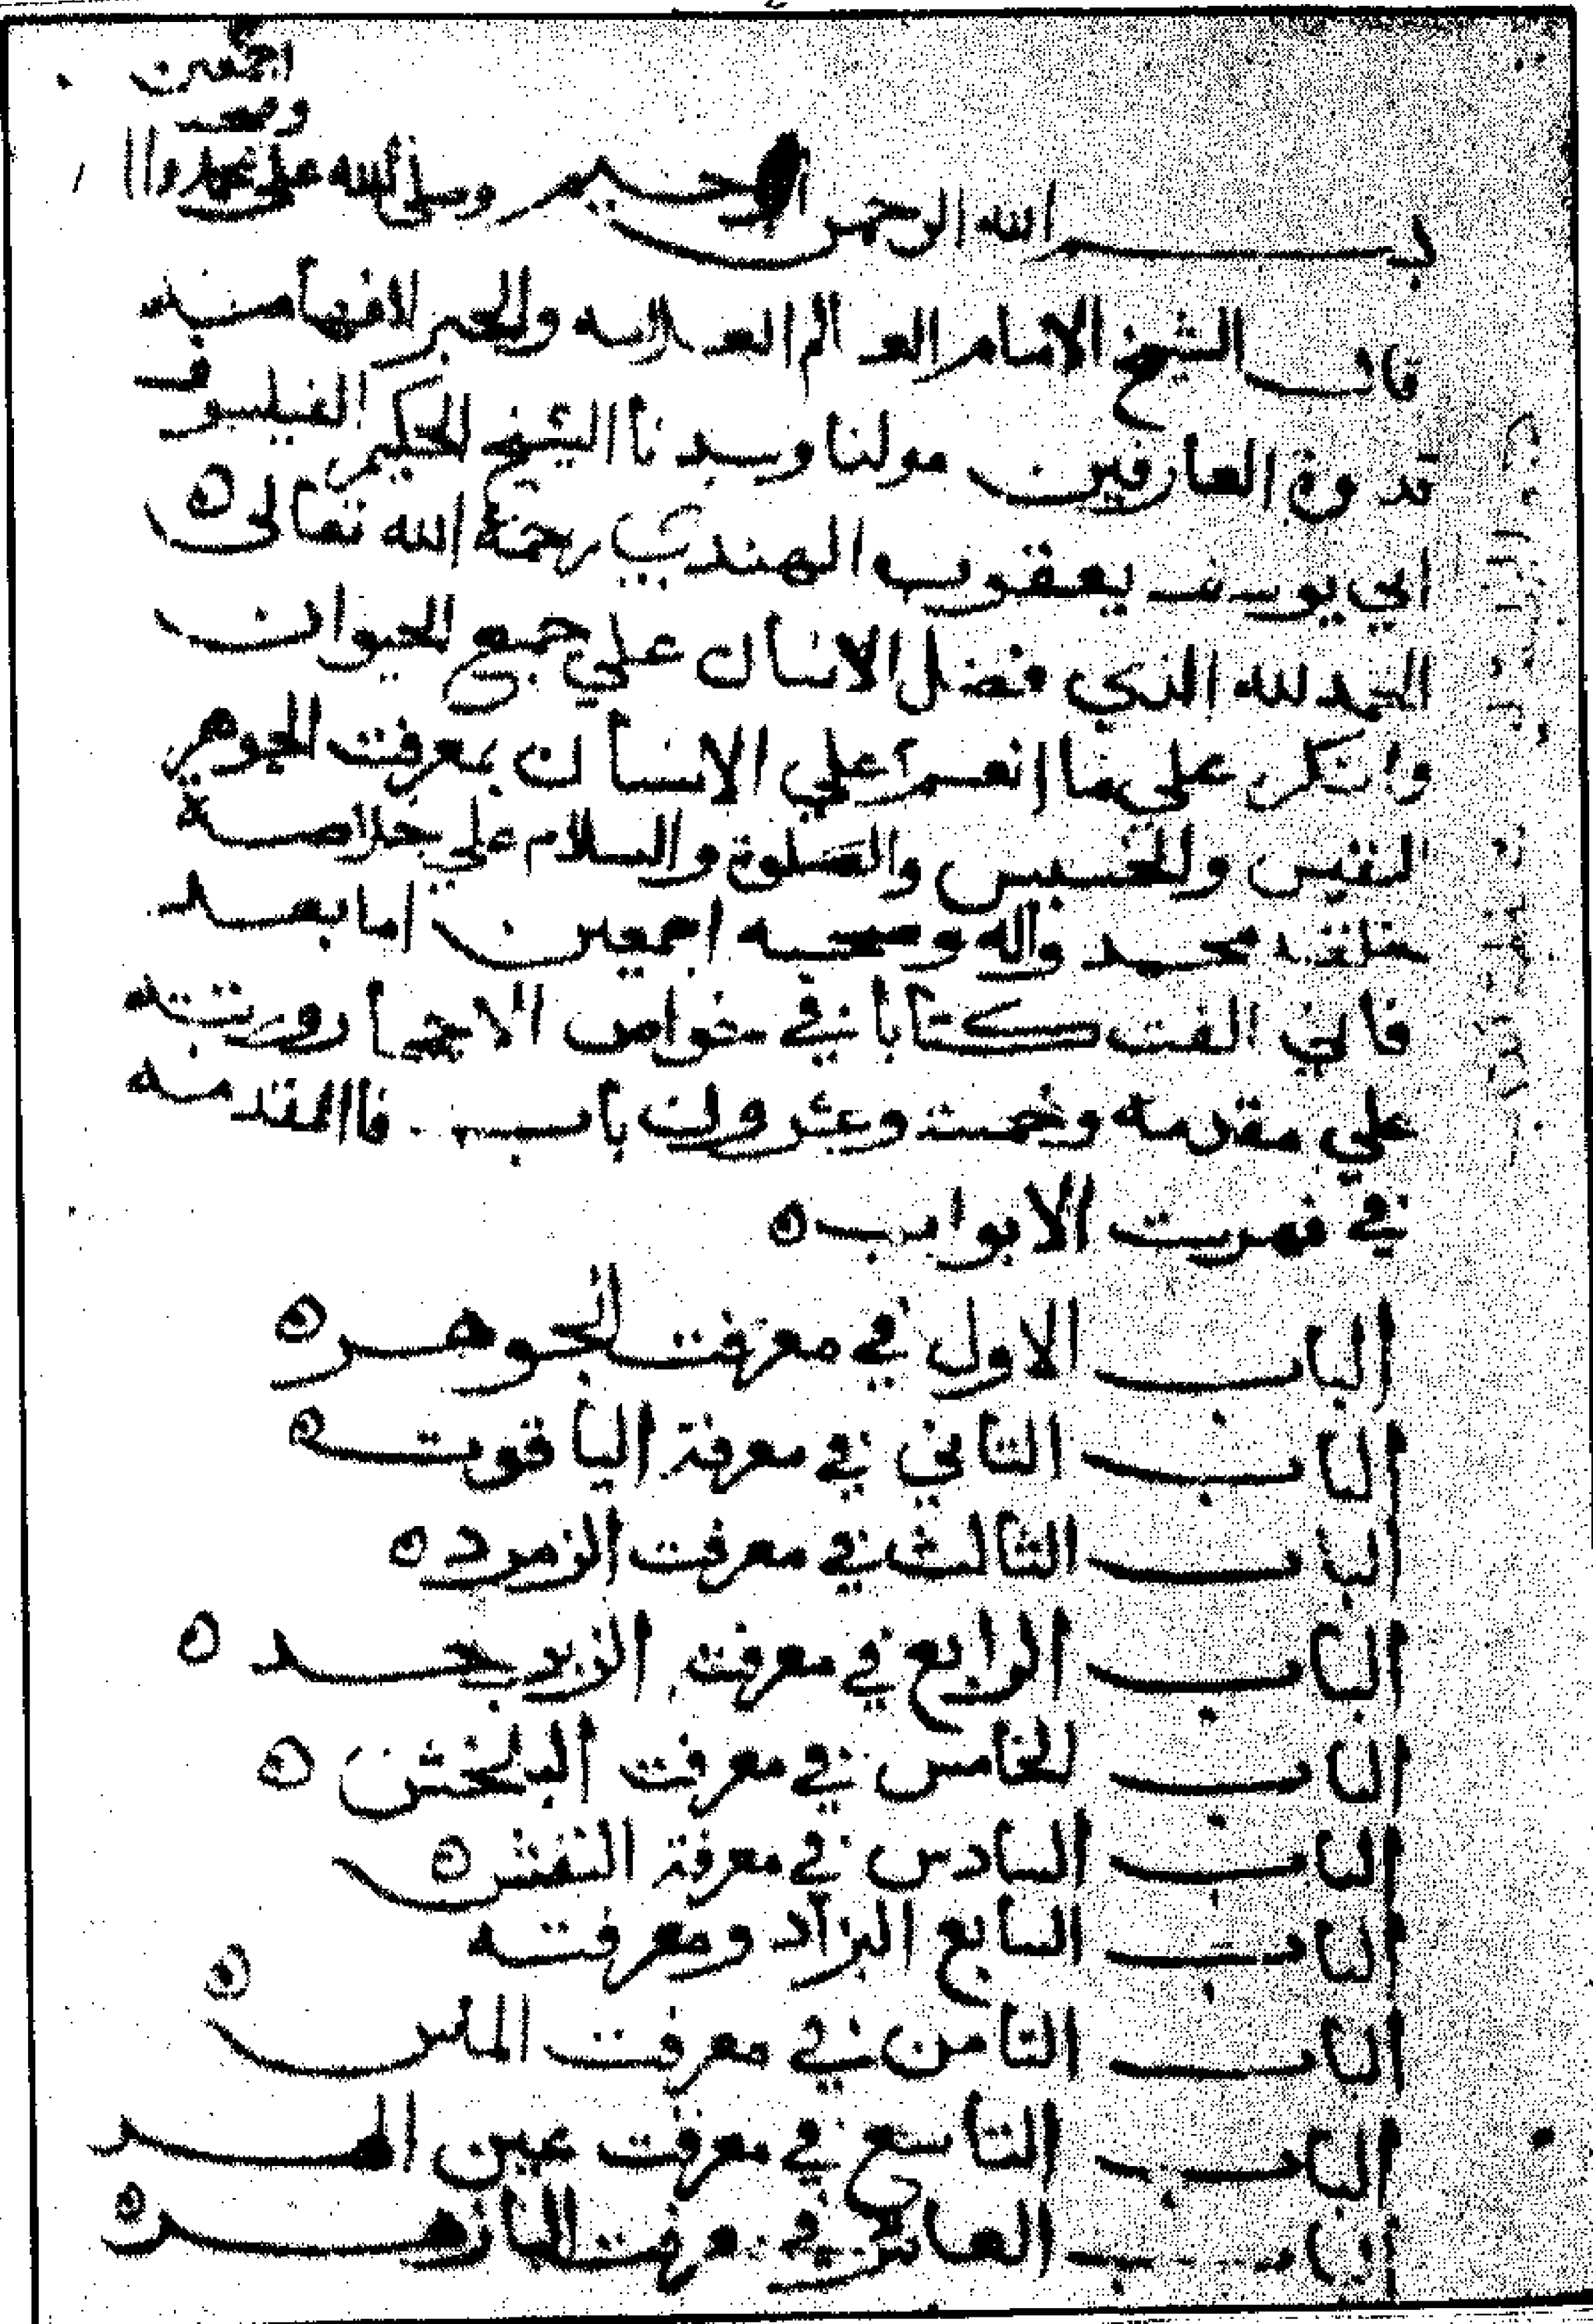 اجمعين
وصحبه
بسم الله الرحمن الرحيم وصلى الله على محمد واا
قال الشيخ الامام العالم العلامه والحبر الافهامنه
قدوة العارفين مولنا وسيدنا الشيخ الحكيم الفيلسوف
ابي يوسف يعقوب الهندي رحمة الله تعالى ه
الحمد لله الذي فضل الانسان علي جميع الحيوان
واشكر علي ما انعم علي الانسان بمعرفت الجوهر
النفيس والخسيس والصلوة والسلام علي خلاصة
خلقه محمد واله وصحبه اجمعين اما بعد
فاني الفت كتابا في خواص الاحجار ورتبته
علي مقدمه وخمست وعشرون باب . فاالمقدمه
في فهرست الابواب ه
الباب الاول في معرفت الجوهر ه
الباب التاني في معرفة الياقوت ه
الباب الثالث في معرفت الزمرد ه
الباب الرابع في معرفت الزبرجد ه
الباب الخامس في معرفت البلخش ه
الباب السادس في معرفة النفش ه
الباب السابع البزاد ومعرفته
الباب التامن في معرفت الماس ه
الباب التاسع في معرفت عين الهر
الباب العاشر في معرفت البازهر ه